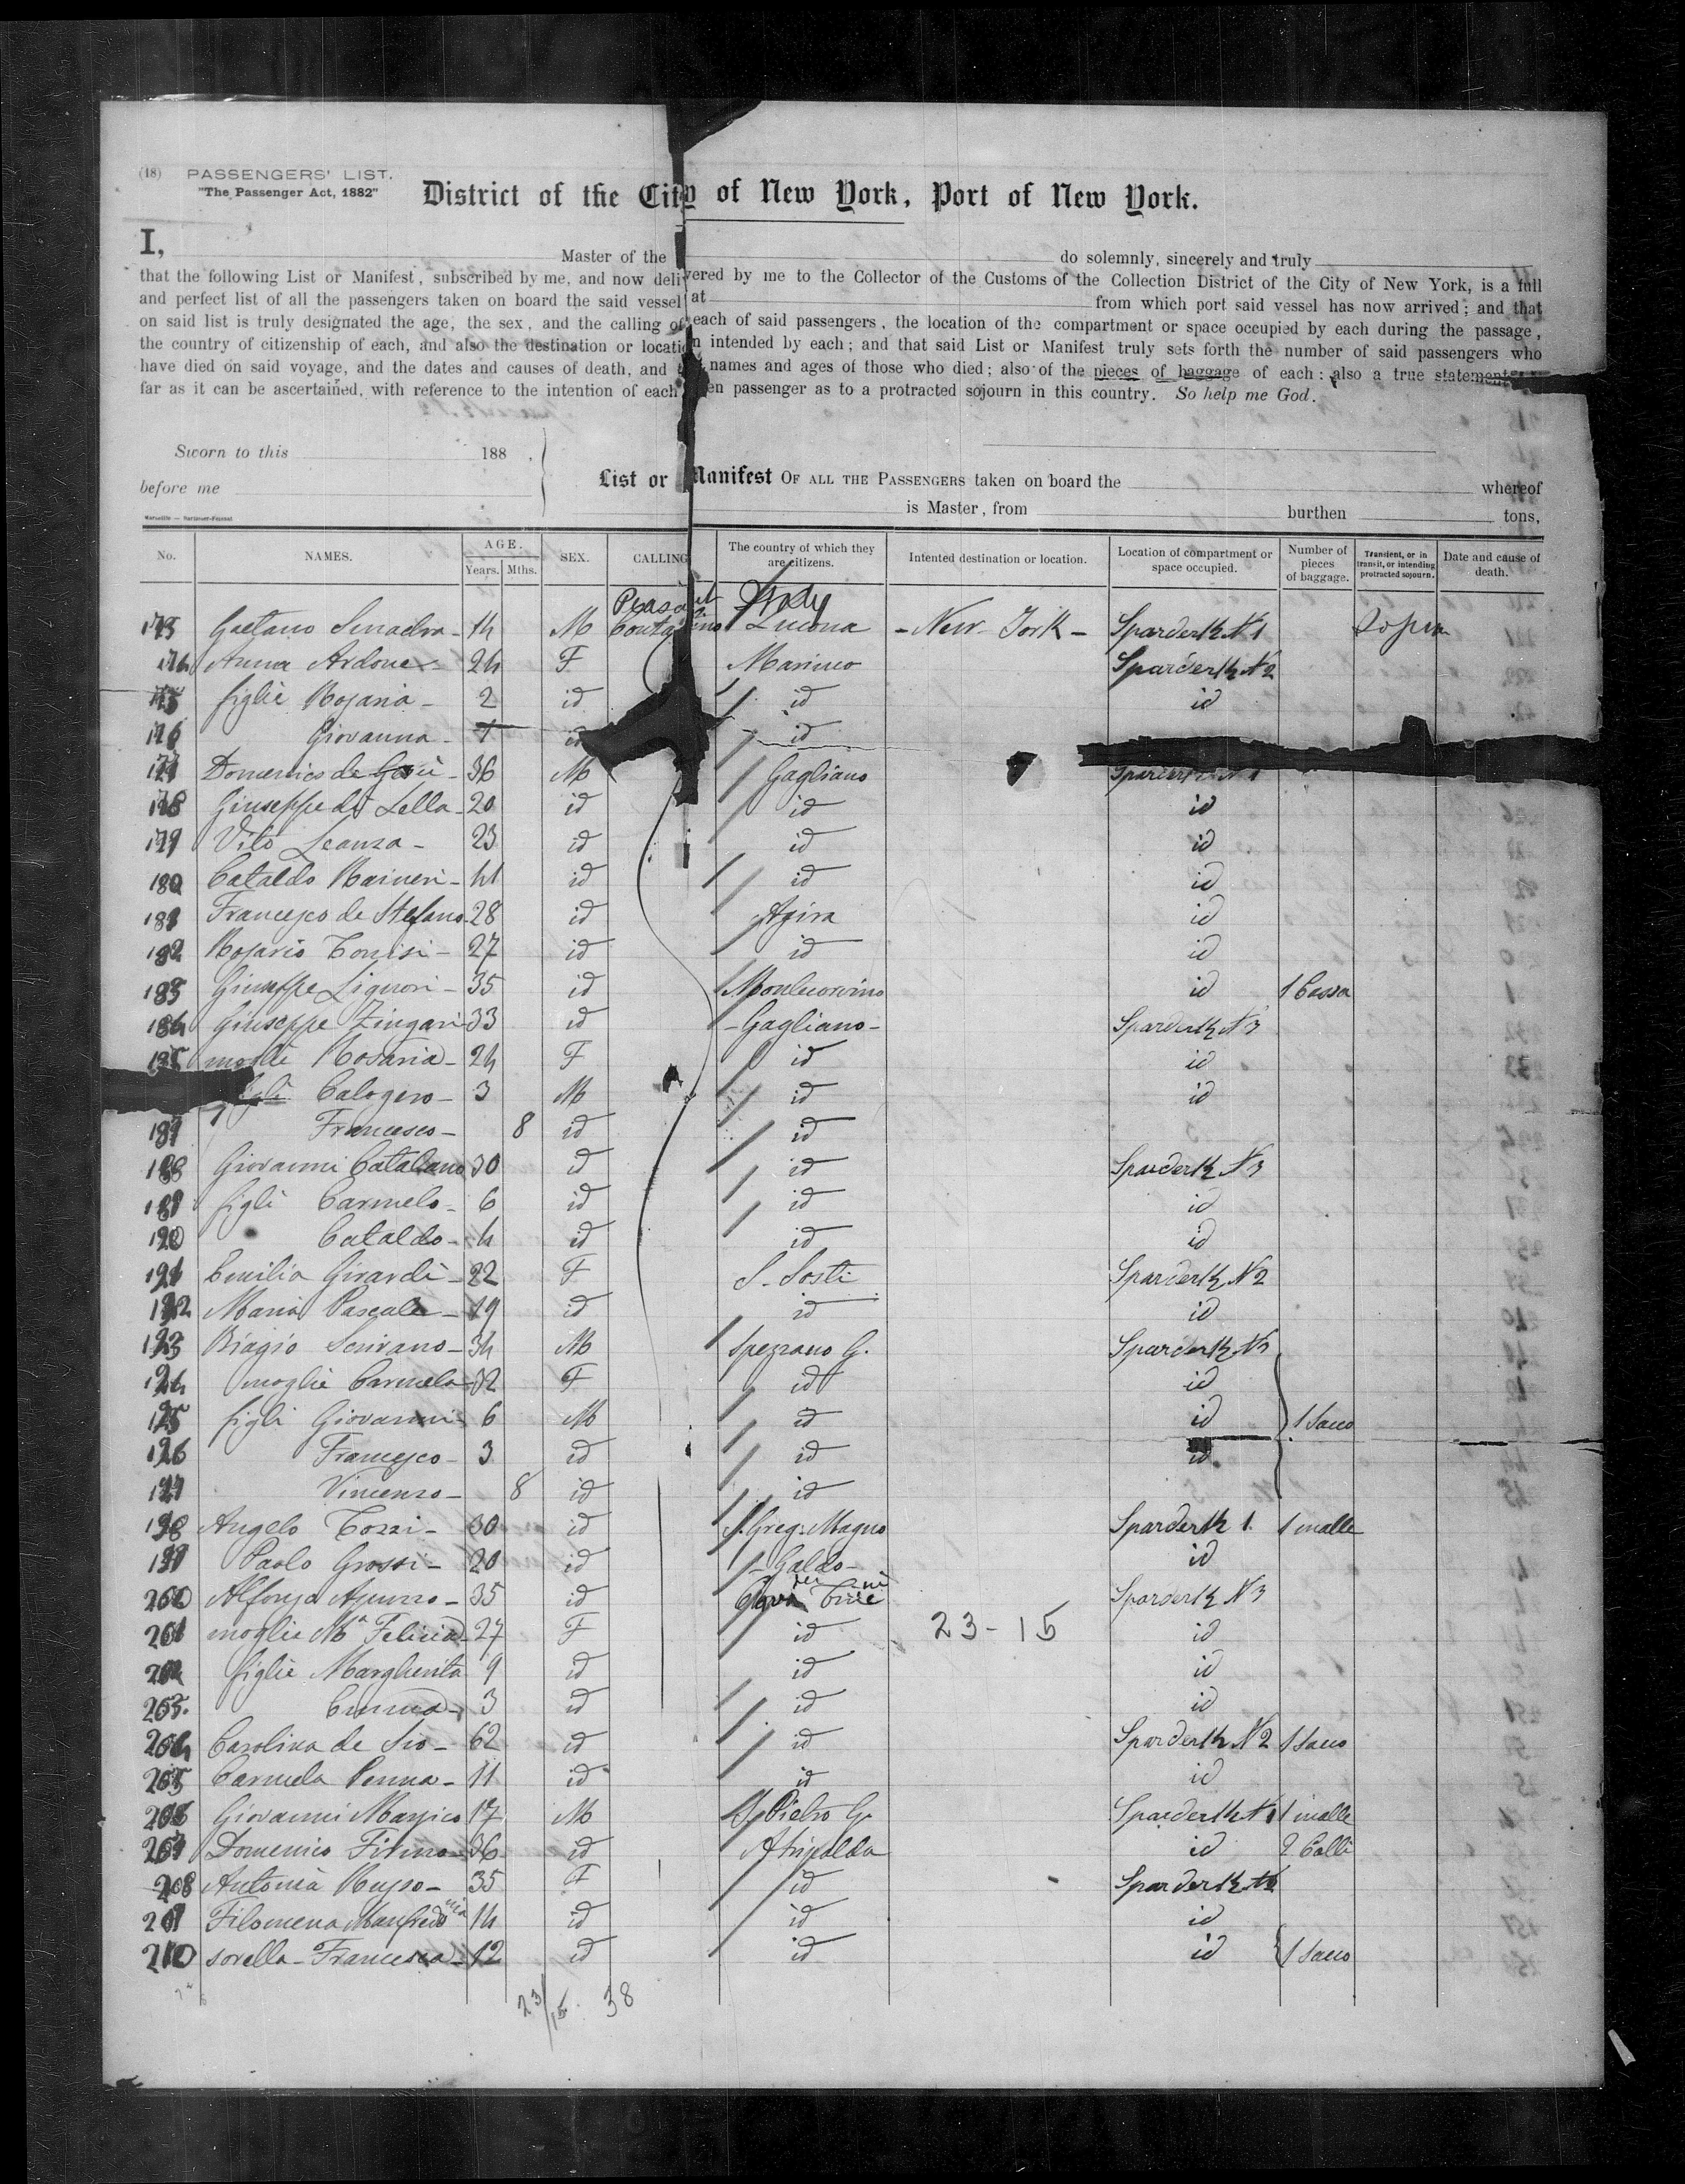 (18) PASSENGERS' LIST.
"The Passenger Act, 1882"
District of the City of New York, Port of New York.
I, Master of the do solemnly, sincerely and truly
that the following List or Manifest, subscribed by me, and now delivered by me to the Collector of the Customs of the Collection District of the City of New York, is a full
and perfect list of all the passengers taken on board the said vessel at from which port said vessel has now arrived; and that
on said list is truly designated the age, the sex, and the calling of each of said passengers, the location of the compartment or space occupied by each during the passage,
the country of citizenship of each, and also the destination or location intended by each; and that said List or Manifest truly sets forth the number of said passengers who
have died on said voyage, and the dates and causes of death, and names and ages of those who died; also of the pieces of baggage of each: also a true statement
far as it can be ascertained, with reference to the intention of each en passenger as to a protracted sojourn in this country. So help me God.
Sworn to this 188
before me
List or Manifest OF ALL THE PASSENGERS taken on board the whereof
is Master, from burthen tons,
No. NAMES. AGE. Years. Mths. SEX. CALLING The country of which they are citizens. Intented destination or location. Location of compartment or space occupied. Number of pieces of baggage. Transient, or in transit, or intending protracted sojourn. Date and cause of death.
Peasant Italy
173 Gaetano 14 M - New-York - Spardertk N 1
174 Anna Ardone 24 F Spardertk N 2
175 figlie Rosaria - 2 id id id
176 Giovanna - 1 id id
177 Domenico de 36 M Gagliano Spardertk N 1
178 Giuseppe di Lella - 20 id id id
179 Vito Leanza - 23 id id id
180 Cataldo Raineri - 41 id id id
181 Francesco de Stefano - 28 id Agira id
182 Rosario 27 id id id
183 Giuseppe Liguori - 35 id Montecorvino id 1 Cassa
184 Giuseppe Zingari 33 id - Gagliano - Spardertk N 3
185 moglie Rosaria - 24 F id id
figli Calogero - 3 M id id
187 Francesco - 8 id id
188 Giovanni Catalano 30 id id Spardertk N 3
189 figli Carmelo - 6 id id id
190 Cataldo - 4 id id id
191 Emilia Girardi - 22 F S. Sosti Spardertk N 2
192 Maria Pascale - 19 id id id
193 Biagio 34 M Spezzano G. Spardertk N 3
194 moglie Carmela 32 F id id
195 figli Giovanni - 6 M id id 1 Sacco
196 Francesco - 3 id id id
197 Vincenzo - 8 id id
198 Angelo Tozzi - 30 id S. Greg. Magno Spardertk 1. 1 malle
199 Paolo Grossi - 20 id Galdo - id
200 Alfonso 35 id Spardertk N 3
201 moglie Ma Felicia - 27 F id 23 - 15 id
202 figlie Margherita 9 id id id
203. 3 id id id
204 Carolina de Sio - 62 id id Spardertk N 2 1 Sacco
205 Carmela Penna - 11 id id id
206 Giovanni 17 M S. Pietro G. Spardertk N 1 1 malle
207 Domenico 36 id Atripalda id 2 Colli
208 Antonia Russo - 35 F id Spardertk N 2
209 Filomena 14 id id id
210 sorella - Francesca - 12 id id id 1 Sacco
23/15 38